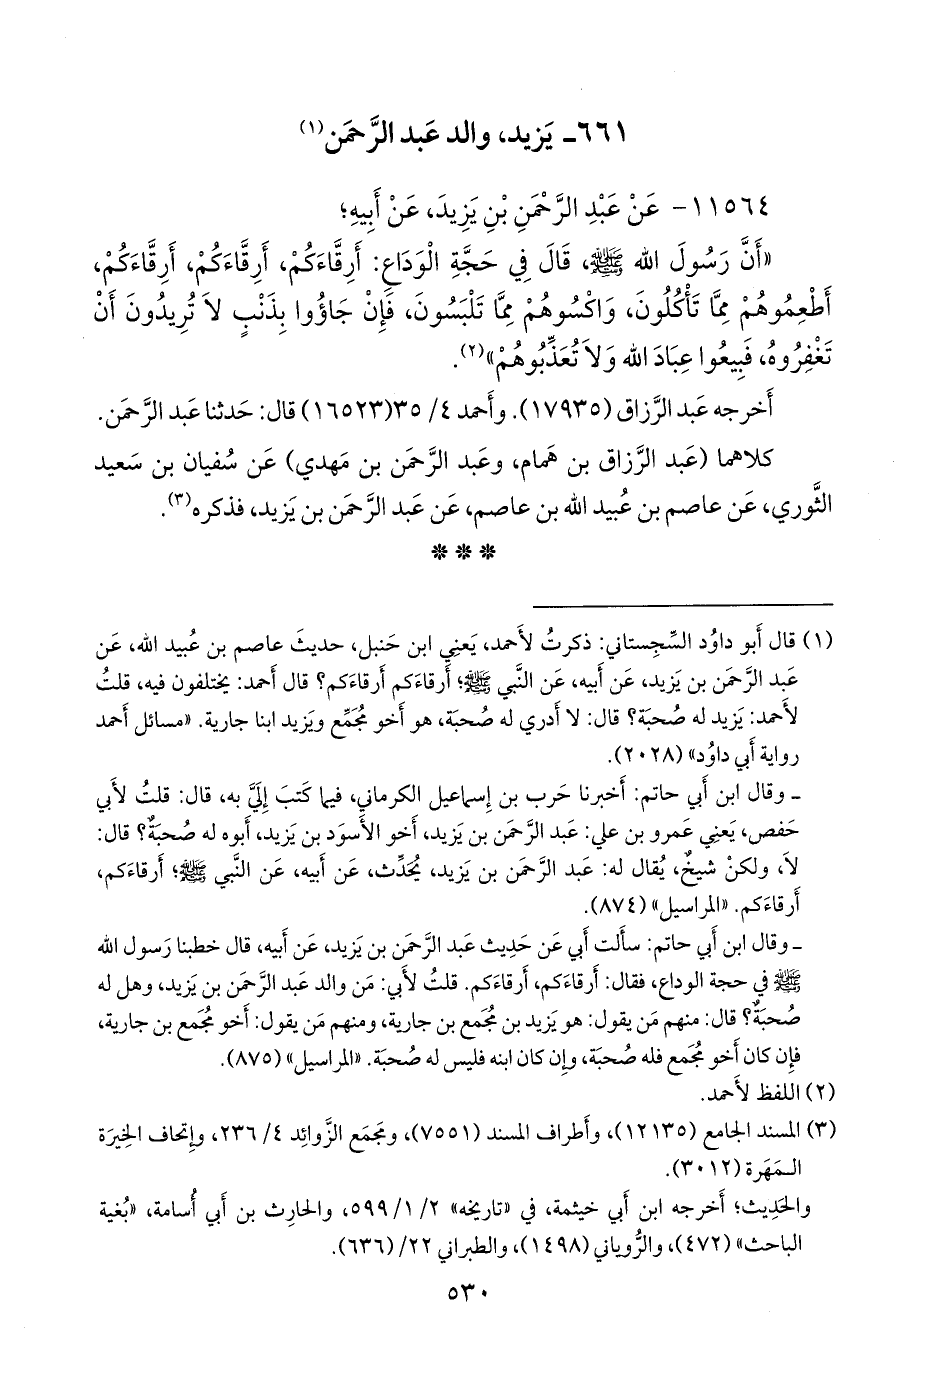 ٦٦١ـ يَزيد، والد عَبد الرَّحمَن(١)
١١٥٦٤- عَنْ عَبْدِ الرَّحْمَنِ بْنِ يَزِيدَ، عَنْ أَبِيهِ؛
«أَنَّ رَسُولَ الله ﷺ، قَالَ فِي حَجَّةِ الْوَدَاعِ: أَرِقَّاءَكُمْ، أَرِقَّاءَكُمْ، أَرِقَّاءَكُمْ،
أَطْعِمُوهُمْ مِمَّا تَأْكُلُونَ، وَاكْسُوهُمْ مِمَّا تَلْبَسُونَ، فَإِنْ جَاؤُوا بِذَنْبٍ لاَ تُرِيدُونَ أَنْ
تَغْفِرُوهُ، فَبِيعُوا عِبَادَ الله وَلاَ تُعَذِّبُوهُمْ»(٢).
أَخرجه عَبد الرَّزاق (١٧٩٣٥). وأَحمد ٤/ ٣٥(١٦٥٢٣) قال: حَدثنا عَبد الرَّحمَن.
كلاهما (عَبد الرَّزاق بن هَمام، وعَبد الرَّحمَن بن مَهدي) عَن سُفيان بن سَعيد
الثَّوري، عَن عاصم بن عُبيد الله بن عاصم، عَن عَبد الرَّحمَن بن يَزيد، فذكره(٣).
* * *
(١) قال أَبو داوُد السِّجِستاني: ذكرتُ لأَحمد، يَعني ابن حَنبل، حديثَ عاصم بن عُبيد الله، عَن
عَبد الرَّحمَن بن يَزيد، عَن أَبيه، عَن النَّبي ﷺ؛ أَرقاءَكم أَرقاءَكم؟ قال أَحمد: يختلفون فيه، قلتُ
لأَحمد: يَزيد له صُحبَة؟ قال: لا أَدري له صُحبَة، هو أَخو مُجَمِّع ويَزيد ابنا جارية. «مسائل أَحمد
رواية أَبي داوُد» (٢٠٢٨).
ـ وقال ابن أَبي حاتم: أَخبرنا حَرب بن إِسماعيل الكرماني، فيما كَتبَ إِلَيَّ به، قال: قلتُ لأَبي
حَفص، يَعني عَمرو بن علي: عَبد الرَّحمَن بن يَزيد، أَخو الأَسوَد بن يَزيد، أَبوه له صُحبَةٌ؟ قال:
لاَ، ولكنْ شيخٌ، يُقال له: عَبد الرَّحمَن بن يَزيد، يُحَدِّث، عَن أَبيه، عَن النَّبي ﷺ؛ أَرقاءَكم،
أَرقاءَكم. «المراسيل» (٨٧٤).
ـ وقال ابن أَبي حاتم: سأَلت أَبي عَن حَدِيث عَبد الرَّحمَن بن يَزيد، عَن أَبيه، قال خطبنا رَسول الله
ﷺ في حجة الوداع، فقال: أَرقاءَكم، أَرقاءَكم. قلتُ لأَبي: مَن والد عَبد الرَّحمَن بن يَزيد، وهل له
صُحبَةٌ؟ قال: منهم مَن يقول: هو يَزيد بن مُجَمع بن جارية، ومنهم مَن يقول: أَخو مُجَمع بن جارية،
فإِن كان أَخو مُجَمع فله صُحبَة، وإِن كان ابنه فليس له صُحبَة. «المراسيل» (٨٧٥).
(٢) اللفظ لأَحمد.
(٣) المسند الجامع (١٢١٣٥)، وأَطراف المسند (٧٥٥١)، ومَجمَع الزَّوائِد ٤/ ٢٣٦، وإِتحاف الخِيرَة
الـمَهَرة (٣٠١٢).
والحَدِيث؛ أَخرجه ابن أَبي خيثمة، في «تاريخه» ٢/ ١/ ٥٩٩، والحارِث بن أَبي أُسامة، «بُغية
الباحث» (٤٧٢)، والرُّوياني (١٤٩٨)، والطبراني ٢٢/ (٦٣٦).
٥٣٠